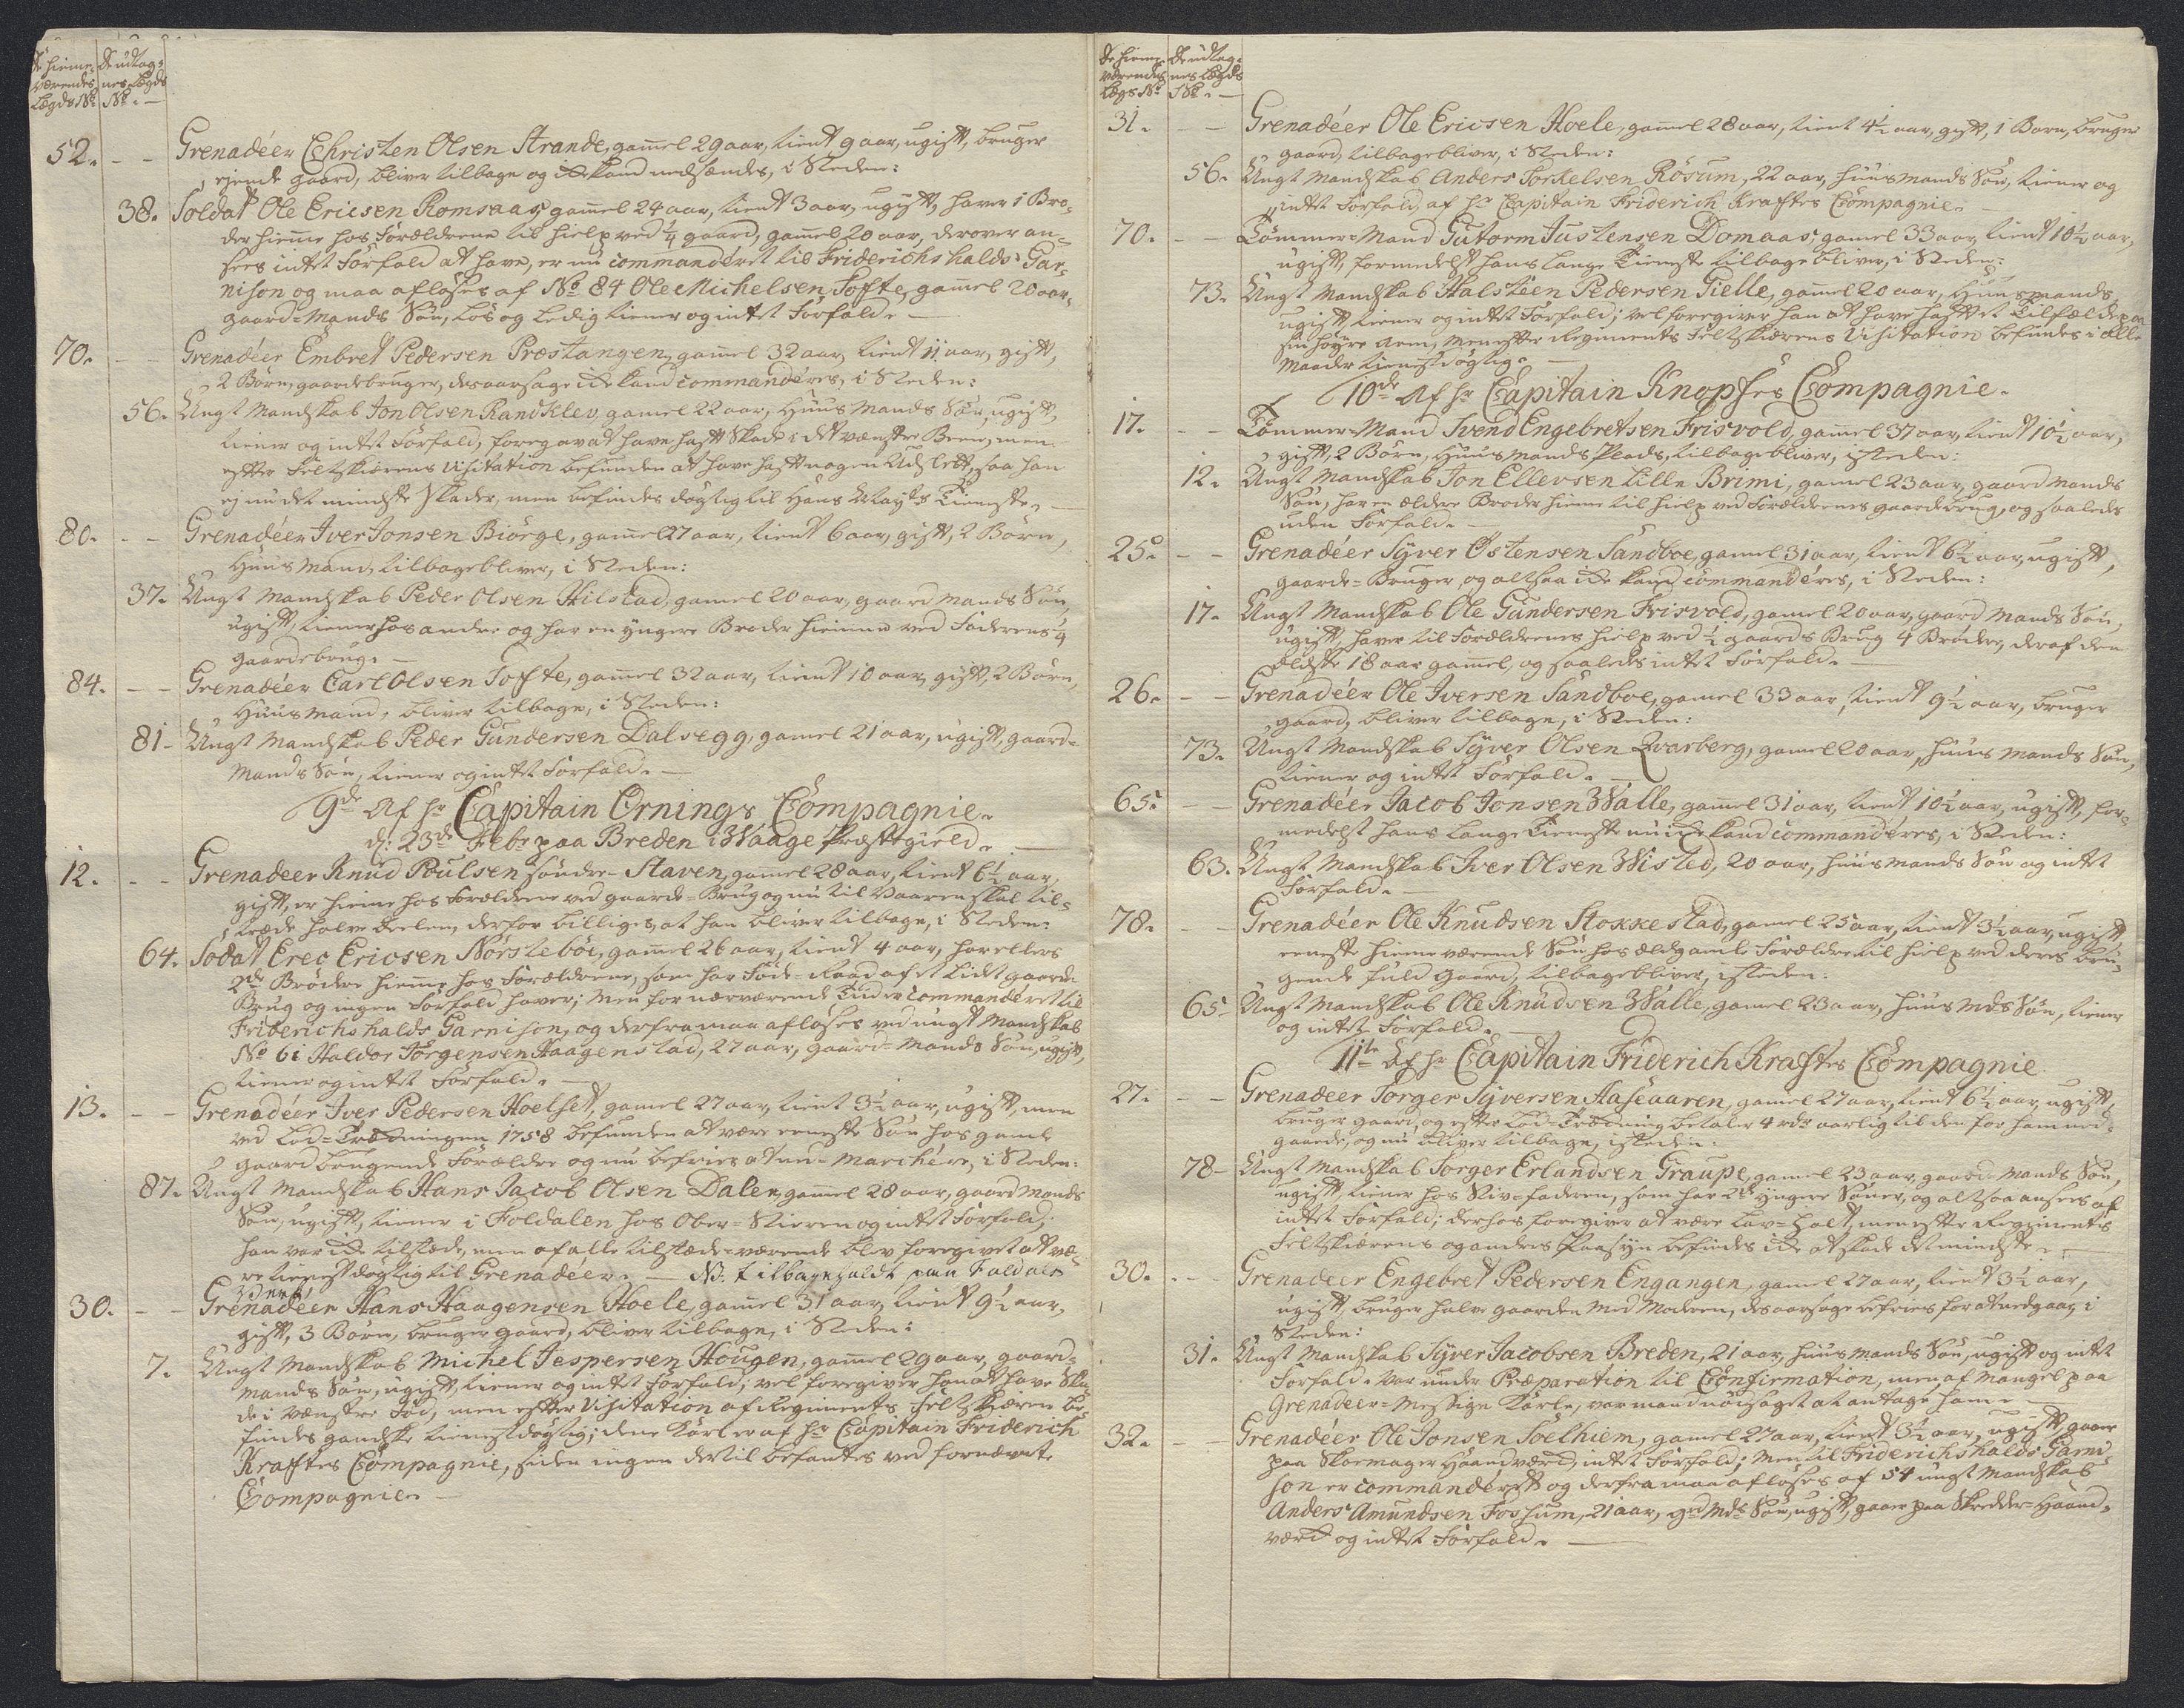 de hieme- de udtag-
værendes nes Lægds
Lægds No No. —
52. - - Grenadéer Christen Olsen Strande, gamel 29 aar, tient 9 aar, ugift, bruger
ejende gaard, bliver tilbage og ike kand nedsændes, i Steden:
38. Soldat Ole Ericsen Romsaas, gamel 24 aar, tient 3 aar, ugift, haver 1 Bro-
der hieme hos Forældrene til hielp ved 1/4 gaard, gamel 20 aar, derover an-
sees intet Forfald at have, er nu commanderet til Friderichshalds Gar-
nison og maa afløses af No 84 Ole Michelsen Tofte, gamel 20 aar,
gaard-Mands Søn, løs og ledig tiener og intet Forfald. —
70. - - Grenadéer Embret Pedersen Præstangen, gamel 32 aar, tient 11 aar, gift,
2 Børn, gaardebruger, desaarsage ike kand commandéres, i Steden:
56. Ungt Mandskab Jon Olsen Randklev, gamel 22 aar, Huus Mands Søn, ugift,
tiener og intet Forfald, foregav at have haft Skade i det venstre Been, men
efter Feltskiærens Visitation befunden at have haft nogen Udslett, saa han
ej nu det mindste skader, men befindes døgtig til Hans Mayts Tieneste. —
80. - - Grenadéer Iver Jonsen Biørge, gamel 27 aar, tient 6 aar, gift, 2 Børn,
Huus Mand, tilbagebliver, i Steden:
37. Ungt Mandskab Peder Olsen Hilstad, gamel 20 aar, gaard Mands Søn,
ugift, tiener hos andre og har en yngere Broder hieme ved Faderens
gaardebrug. —
84. - - Grenadéer Carl Olsen Tofte, gamel 32 aar, tient 10 aar, gift, 2 Børn,
Huus Mand, bliver tilbage, i Steden:
81 - Ungt Mandskab Peder Gundersen Dalsegg, gamel 21 aar, ugift, gaard-
Mands Søn, tiener og intet Forfald. —
9de Af hr Capitain Ornings Compagnie.
d: 23de Febr paa Breden i Waage Præstegield. —
12. - - Grenadeer Knud Poulsen søndre-Staven, gamel 28 aar, tient 6 1/2 aar,
gift, er hieme hos Forældrene ved gaards-Brug og nu til Vaaren skal til-
træde halve deelen, derfor billiges, at han bliver tilbage, i Steden:
64. Sodat Erec Ericsen Nørstebøe, gamel 26 aar, tient 4 aar, har ellers
2de Brødre hieme hos Forældrene, som har Føde-Raad af et Lidet gaards
Brug og ingen Forfald haver; Men for nærværende Tid er commandéret til
Friderichshalds Garnison, og derfra maa afløses ved ungt Mandskab
No 61 Haldor Jørgensen Haagenstad, 27 aar, gaard-Mands Søn, ugift,
tiener og intet Forfald. —
13. - - Grenadéer Iver Pedersen Hoelset, gamel 27 aar, tient 3 1/2 aar, ugift, men
ved Lod-Trækningen 1758 befunden at være eeneste Søn hos gamle
gaard brugende Forældre og nu befries at ud-Marchere, i Steden:
87. Ungt Mandskab Hans Jacob Olsen Dalen, gamel 28 aar, gaard Mands
Søn, ugift, tiener i Foldalen hos Ober-Stieren og intet Forfald;
han var ike tilstæde, men af alle tilstæde-værende blev foregivet at væ-
re tienestdøgtig til Grenadéer. — NB. tilbageholdt paa Foldals
30. - - Grenadéer Hans Haagensen Hoele, gamel 31 aar, tient 9 1/2 aar,
gift, 3 Børn, bruger gaard, bliver tilbage, i Steden:
7. Ungt Mandskab Michel Jespersen Hougen, gamel 29 aar, gaard-
Mands Søn, ugift, tiener og intet forfald; vel foregiver han at have Ska-
de i venstre Fod, men efter Visitation af Regiments Feltskiæren be-
findes gandske tienestdøgtig; denne Karl er af hr Capitain Friderich
Kraftes Compagnie, siden ingen dertil befantes ved fornævnte
Compagnie. —
de hieme- de udtag-
værendes nes Lægds
Lægs No No. —
31. - - Grenadéer Ole Ericsen Hoele, gamel 28 aar, tient 4 1/2 aar, gift, 1 Barn, bruger
gaard, tilbagebliver, i Steden:
56. Ungt Mandskab Anders Torkelsen Røsum, 22 aar, huus mands Søn, tiener og
intet Forfald, af hr Capitain Friderich Kraftes Compagnie.
70. - - Tømmer-Mand Gutorm Justensen Domaas, gamel 33 aar, tient 10 1/2 aar,
ugift, formedelst hans lange Tieneste tilbage bliver, i Steden:
73. Ungt Mandskab Halsteen Pedersen Gielle, gamel 20 aar, Huusmands
ugift, tiener og intet Forfald; vel foregiver han at have haft et Tilfælde paa
sin høyre Arm, men efter Regiments Feltskiærens Visitation befindes i alle
Maader tienestdøgtig. —
10de Af hr Capitain Knopfes Compagnie.
17. - - Tømmer-Mand Svend Engebretsen Frisvold, gamel 37 aar, tient 10 1/2 aar,
gift, 2 Børn, Huus Mands Plads, tilbagebliver, isteden:
12. Ungt Mandskab Jon Ellevsen Lille Brimi, gamel 23 aar, gaard Mands
Søn, har en ældere Broder hieme til hielp ved Forældrenes gaardebrug, og saaledes
uden Forfald. —
25. - - Grenadéer Syver Østensen Sandboe, gamel 31 aar, tient 6 1/2 aar, ugift,
gaards-Bruger og altsaa ike kand commandéres, i Steden:
17. Ungt Mandskab Ole Gundersen Frisvold, gamel 20 aar, gaard Mands Søn,
ugift, haver til Forældrenes hielp ved 1/2 gaards Brug 4 Brødre, deraf den
ældste 18 aar gamel, og saaledes intet Forfald. —
26. - - Grenadéer Ole Iversen Sandboe, gamel 33 aar, tient 9 1/2 aar, bruger
gaard, bliver tilbage, i Steden:
73. Ungt Mandskab Syver Olsen Qvarberg, gamel 20 aar, huus mands Søn,
tiener og intet Forfald. —
65. - - Grenadéer Jacob Jonsen Walle, gamel 31 aar, tient 10 1/2 aar, ugift, for-
medelst hans lange Tieneste nu ike kand commandéres, i Steden:
63. Ungt Mandskab Iver Olsen Wisted, 20 aar, huus mands Søn og intet
Forfald. —
78. - - Grenadéer Ole Knudsen Stokkestad, gamel 25 aar, tient 3 1/2 aar, ugift
eeneste hieme værende Søn hos ældgamle Forældre til hielp ved deres bru-
gende fuld Gaard, tilbagebliver, isteden:
65 - Ungt Mandskab Ole Knudsen Walle, gamel 23 aar, huus Mds Søn, tiener
og intet Forfald. —
11te Af hr Capitain Friderich Kraftes Compagnie
27. - - Grenadeer Torger Syversen Aaseaaren, gamel 27 aar, tient 6 1/2 aar, ugift,
bruger gaard, og efter Lod-Trækning betaler 4 rdr aarlig til den for ham ned-
gaaede, og nu bliver tilbage, isteden:
78 - Ungt Mandskab Torger Erlandsen Graupe, gamel 23 aar, gaard-Mands Søn,
ugift, tiener hos Stiv-faderen, som har 2de yngere Sønner, og altsaa ansees af
intet Forfald; derhos foregiver at være Lav-halt, men efter Regiments
Feltskiærens og anders Paasyn befindes ike at skade det mindste. —
30. - - Grenadeer Engebret Pedersen Engangen, gamel 27 aar, tient 3 1/2 aar,
ugift, bruger halve gaarden med Moderen, desaarsage befries for at nedgaae, i
Steden:
31. Ungt Mandskab Syver Jacobsen Breden, 21 aar, huus mands Søn, ugift og intet
Forfald. Var under Præparation til Confirmation, men af Mangel paa
Grenadeer-Messige Karle, var mand nødsaget at antage ham. —
32. - - Grenadéer Ole Jonsen Soelhiem, gamel 27 aar, tient 3 1/2 aar, ugift, gaaer
paa Skoemager Haandværk, intet Forfald; Men til Friderichshalds Garni-
son er commandéret og derfra maa afløses af 54 ungt Mandskab
Anders Amundsen Foshum, 21 aar, grd Mds Søn, ugift, gaaer paa Skrædder-Haand-
værk og intet Forfald. —